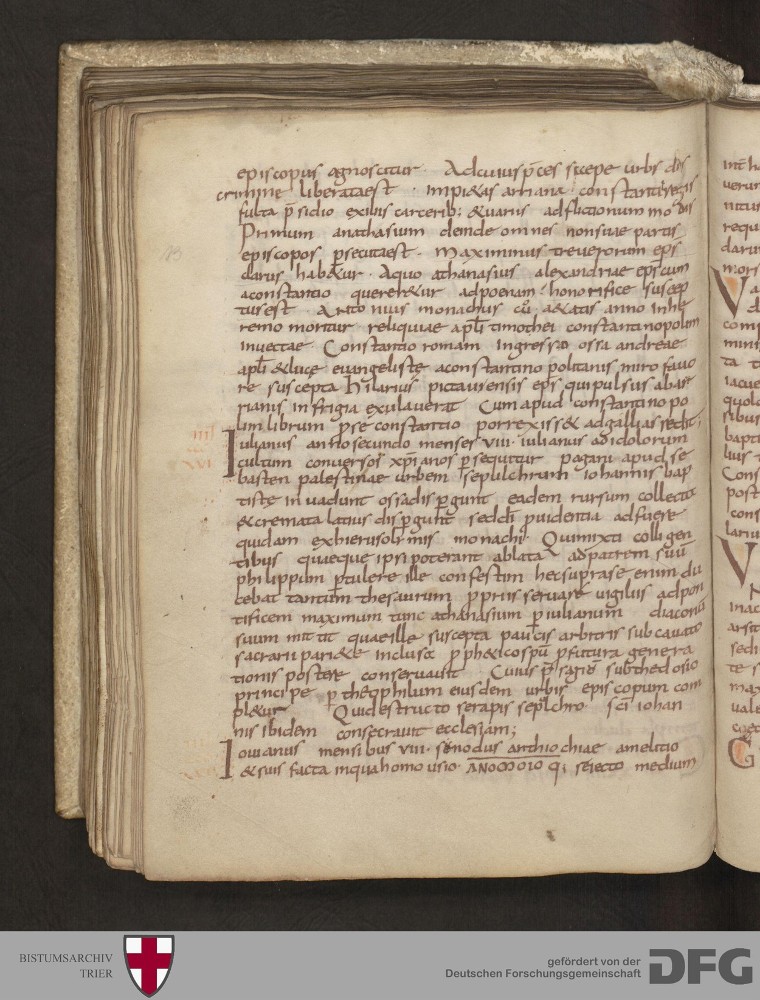 episcopus agnoscitur · Ad cuius p̄ces sepe urbs dis
crimine liberata est · impi&as arriana · constantii regis
fulta p̄sidio exiliis carcerib; & uariis adflictionum modis
Primum anathasium deinde omnes non suae partis
episcopos p̄secuta est · Maximinus treuerorum ep̄s
clarus hab&ur · A quo athanasius alexandriae ep̄s cum
a constantio querer&ur ad poenam · honorifice suscep
tus est · Antonius monachus cū a&atis anno in he
remo moritur reliquiae apl̄i timothei constantinopolim
inuectae · Constantio romam ingresso ossa andreae
apl̄i & lucę euangelistę a constantinopolitanis miro fauo
re suscepta hilarius pictauensis ep̄s qui pulsus ab ar
rianis in frigia exulauerat Cum apud constantinopo
lim librum p̄ se constantio porrexiss& ad gallias redit ·
Iulianus anno secundo menses VIII · iulianus ad idolorum
cultum conuersos xp̄ianos p̄sequitur pagani apud se
basten palestinae urbem sepulchrum iohannis bap
tistę inuadunt ossa dispergunt eadem rursum collecta
& cremata latius dispergunt sed dī prouidentia adfuere
quidam ex hierusolimis monachi Qui mixti colligen
tibus quaeque ipsi poterant ablata ad patrem suū
philippum p̄tulere ille confestim hec supra se enim du
cebat tantum thesaurum propriis seruare uigiliis ad pon
tificem maximum tunc athanasium p̄ iulianum diaconū
suum mittit quae ille suscepta paucis arbitris sub cauato
sacrarii pari&e inclusa proph&ico spū profutura genera
tionis posterę conseruauit Cuius p̄sagiū sub thedosio
principe p̄ theophilum eiusdem urbis episcopum com
pl&ur Qui destructo serapis sepl̄chro sc̄i iohan
nis ibidem consecrauit ecclesiam;
Iouianus mensibus VIII · senodus anthiochiae a melitio
& suis facta in qua homousio · q; reiecto medium
BISTUMSARCHIV
TRIER
gefördert von der
Deutschen Forschungsgemeinschaft
DFG